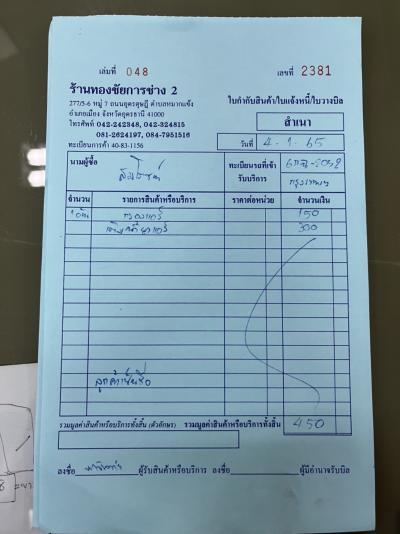 เล่มที่ 048 เลขที่ 2381
ร้านทองชัยการช่าง 2
277/5-6 หมู่ 7 ถนนอุดรดุษฎี ตำบลหมากแข้ง
อำเภอเมือง จังหวัดอุดรธานี 41000
โทรศัพท์ 042-242348, 042-324815
081-2624197, 084-7951516
ทะเบียนการค้า 40-83-1156
ใบกำกับสินค้า/ใบแจ้งหนี้/ใบวางบิล
สำเนา
วันที่ 4-1-65
นามผู้ซื้อ
ทะเบียนรถที่เข้ารับบริการ
กรุงเทพฯ
จำนวน รายการสินค้าหรือบริการ ราคาต่อหน่วย จำนวนเงิน
150
300
ลูกค้าเซ็นชื่อ
รวมมูลค่าสินค้าหรือบริการทั้งสิ้น (ตัวอักษร) รวมมูลค่าสินค้าหรือบริการทั้งสิ้น 450
ลงชื่อ ผู้รับสินค้าหรือบริการ ลงชื่อ ผู้มีอำนาจรับบิล